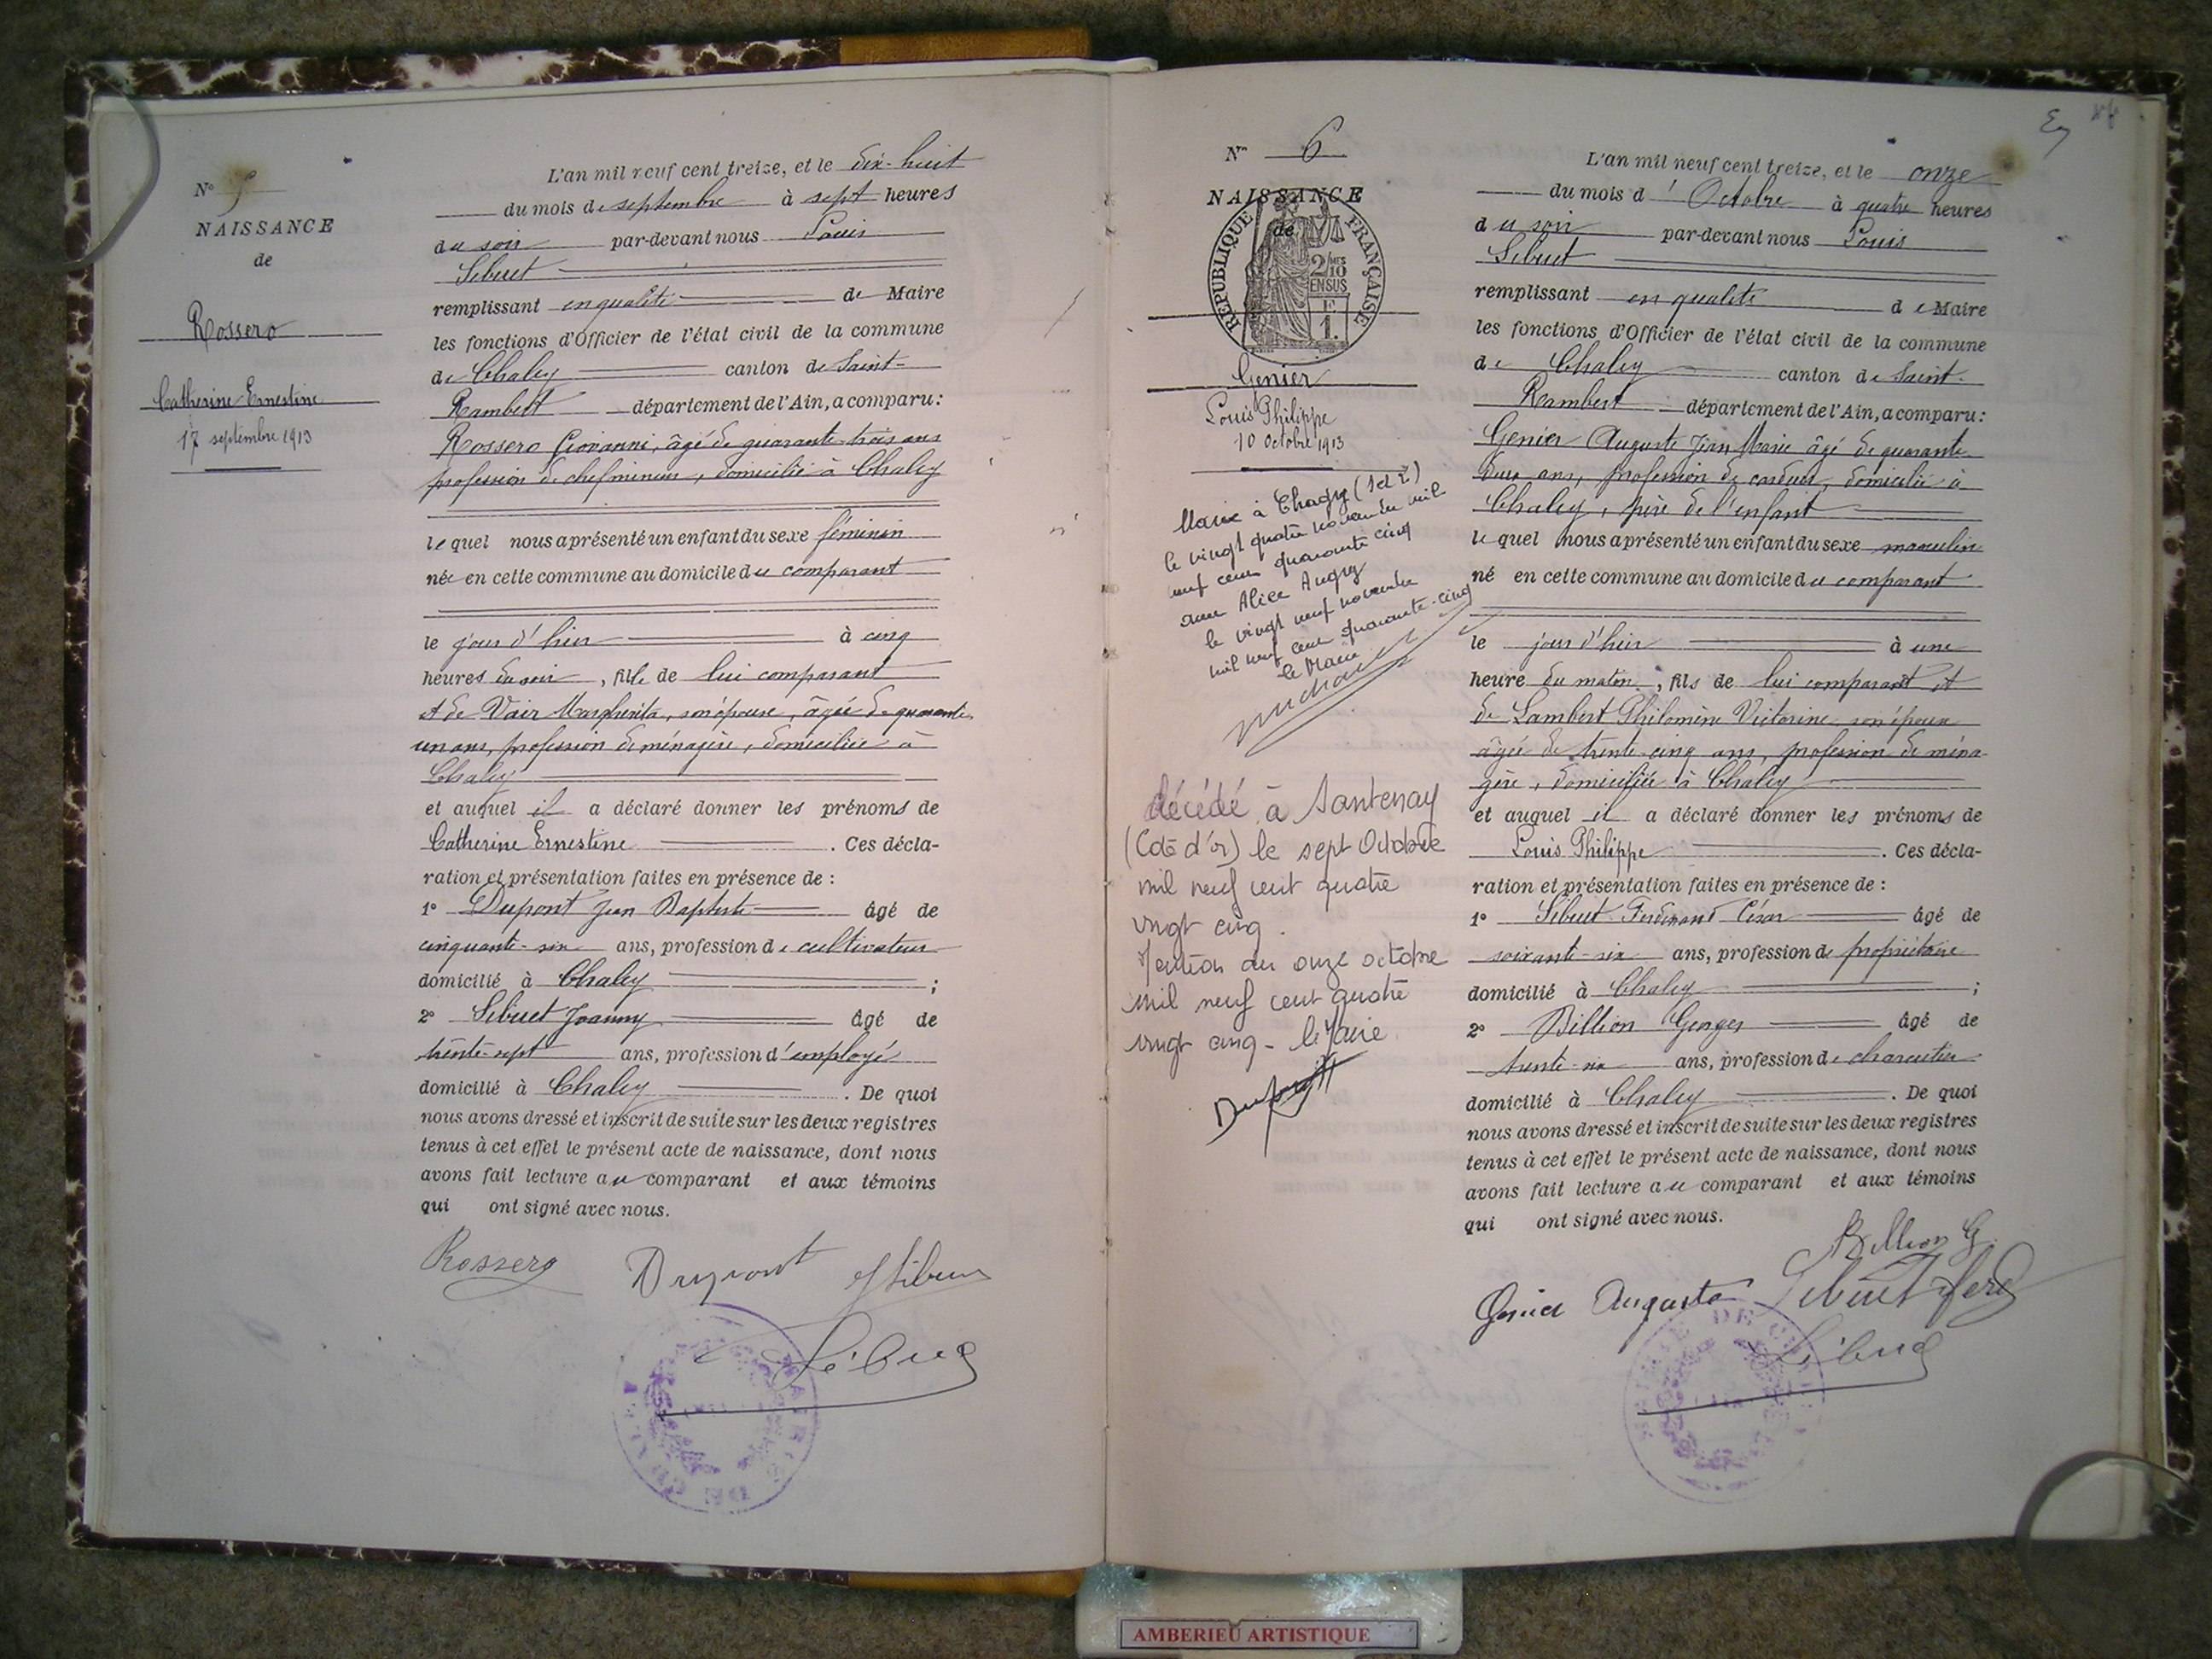 N° 5
NAISSANCE
de
Rossero
Catherine Ernestine
17 septembre 1913
L'an mil neuf cent treize, et le dix-huit
du mois de septembre à sept heures
du soir par-devant nous Louis
Sibuet
remplissant en qualité de Maire
les fonctions d'Officier de l'état civil de la commune
de Chaley canton de Saint-
Rambert département de l'Ain, a comparu:
Rossero Giovanni, âgé de quarante-trois ans
profession de chef mineur, domicilié à Chaley
lequel nous a présenté un enfant du sexe féminin
née en cette commune au domicile du comparant
le jour d'hier à cinq
heures du soir, fille de lui comparant
et de Vair Margherita, son épouse, âgée de quarante
un ans, profession de ménagère, domiciliée à
Chaley
et auquel il a déclaré donner les prénoms de
Catherine Ernestine. Ces décla-
ration et présentation faites en présence de :
1° Dupont Jean Baptiste âgé de
cinquante-six ans, profession de cultivateur
domicilié à Chaley ;
2° Sibuet Joanny âgé de
trente-sept ans, profession d'employé
domicilié à Chaley. De quoi
nous avons dressé et inscrit de suite sur les deux registres
tenus à cet effet le présent acte de naissance, dont nous
avons fait lecture au comparant et aux témoins
qui ont signé avec nous.
Rossero Dupont J Sibuet
Sibuet
N° 6
NAISSANCE
de
RÉPUBLIQUE FRANÇAISE
2/10
EN SUS
1 F.
Genier
Louis Philippe
10 Octobre 1913
Marié à Chagny (S et L)
le vingt quatre novembre mil
neuf cent quarante cinq
avec Alice Augry
le vingt neuf novembre
mil neuf cent quarante-cinq
le Maire
décédé à Santenay
(Côte d'or) le sept Octobre
mil neuf cent quatre
vingt cinq.
Mention du onze octobre
mil neuf cent quatre
vingt cinq - le Maire
Dupont
L'an mil neuf cent treize, et le onze
du mois d'Octobre à quatre heures
du soir par-devant nous Louis
Sibuet
remplissant en qualité de Maire
les fonctions d'Officier de l'état civil de la commune
de Chaley canton de Saint-
Rambert département de l'Ain, a comparu:
Genier Auguste Jean Marie âgé de quarante
deux ans, profession de cardeur, domicilié à
Chaley, père de l'enfant
lequel nous a présenté un enfant du sexe masculin
né en cette commune au domicile du comparant
le jour d'hier à une
heure du matin, fils de lui comparant et
de Lambert Philomène Victorine son épouse
âgée de trente-cinq ans, profession de ména-
gère, domiciliée à Chaley
et auquel il a déclaré donner les prénoms de
Louis Philippe. Ces décla-
ration et présentation faites en présence de :
1° Sibuet Ferdinand César âgé de
soixante-six ans, profession de propriétaire
domicilié à Chaley ;
2° Billion Georges âgé de
trente-six ans, profession de charcutier
domicilié à Chaley. De quoi
nous avons dressé et inscrit de suite sur les deux registres
tenus à cet effet le présent acte de naissance, dont nous
avons fait lecture au comparant et aux témoins
qui ont signé avec nous.
Billion G
Genier Auguste Sibuet Ferd
Sibuet
AMBERIEU ARTISTIQUE